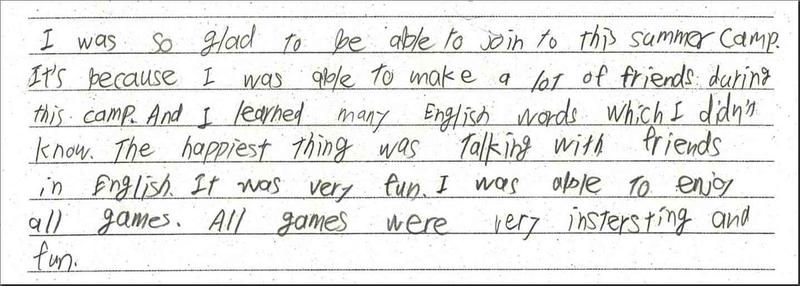 I was so glad to be able to join to this summer camp.
It's because I was able to make a lot of friends during
this camp. And I learned many English words which I didn't
know. The happiest thing was talking with friends
in English. It was very fun. I was able to enjoy
all games. All games were very instersting and
fun.